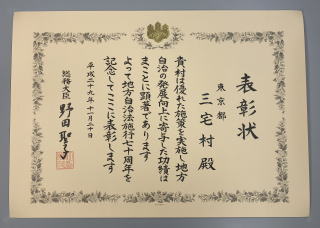 表彰状
東京都
三宅村殿
貴村は優れた施策を実施し地方
自治の発展向上に寄与した功績は
まことに顕著であります
よって地方自治法施行七十周年を
記念してここに表彰します
平成二十九年十一月二十日
総務大臣 野田聖子